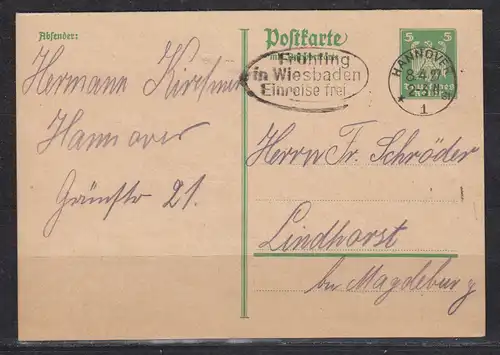 Absender:
Hermann Kirchner
Hannover
Grünstr 21.
Postkarte
Frühling
in Wiesbaden
Einreise frei
5 5
HANNOVER
8.4.27
* 1
Herrn Fr. Schröder
Lindhorst
bei Magdeburg